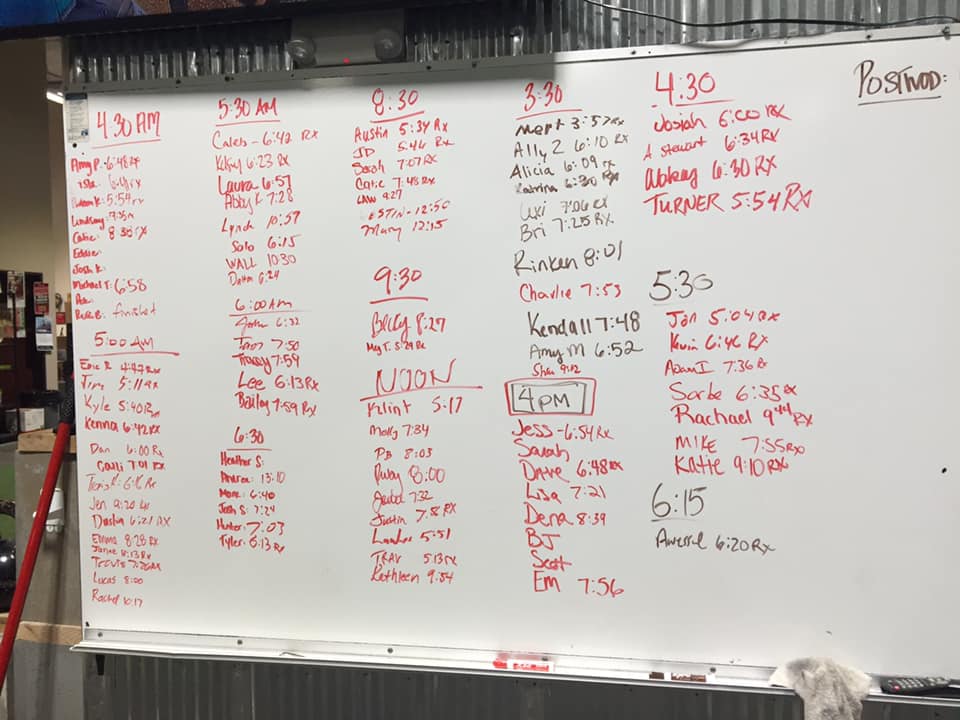 4:30 AM
Amy P. 6:48 Rx
5:54 Rx
Lindsay
Catie 8:38 Rx
Eddie
Josh K.
Michael T. 6:58
finished
5:00 AM
Eric R 4:47 Rx
Troy 5:11 Rx
Kyle 5:40 Rx
Kenna 6:42 Rx
Dan 6:00 Rx
Calli 7:01 Rx
Jen 9:20
Dustin 6:21 RX
Emma 8:28 Rx
Jamie 8:13 Rx
Travis 7:20 Rx
Lucas 8:00
Rachel 10:17
5:30 AM
Caleb - 6:42 Rx
Kelsey 6:23 Rx
Laura 6:57
Abby K 7:28
Lynch 10:57
Solo 6:15
WALL 10:30
6:24
6:00 AM
John 6:32
7:50
Tracey 7:59
Lee 6:13 Rx
Bailey 7:59 Rx
6:30
Heather S:
Andrea: 13:10
Mark: 6:40
Josh S: 7:24
Hunter: 7:03
Tyler: 6:13 Rx
8:30
Austin 5:34 Rx
JD 5:46 Rx
Sarah 7:07 Rx
Catie 7:48 Rx
LAW 9:27
ESTIN - 12:50
Mary 12:15
9:30
Becky 8:27
Meg T. 5:29 Rx
NOON
Klint 5:17
Molly 7:34
PB 8:03
Ruby 8:00
7:32
Justin 7:58 RX
Landon 5:51
TRAV 5:13 RX
Kathleen 9:54
3:30
Mert 3:57 Rx
Ally Z 6:10 Rx
Alicia 6:09 rx
Katrina 6:30 Rx
7:06 RX
Bri 7:25 RX.
Rinken 8:01
Charlie 7:53
Kendall 7:48
Amy M 6:52
Shan 9:12
4 PM
Jess - 6:54 Rx
Sarah
DAVE 6:48 RX
Lisa 7:21
Dena 8:39
BJ
Scott
Em 7:56
4:30
Josiah 6:00 RX
A Stewart 6:34 Rx
Abbey 6:30 RX
TURNER 5:54 RX
5:30
Jon 5:04 Rx
Kevin 6:46 Rx
Adam I 7:36 Rx
6:35 RX
Rachael 9:44 RX
MIKE 7:55 RX
KATIE 9:10 RX
6:15
6:20 Rx
POSTWOD: